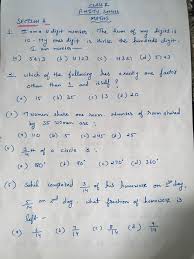 CLASS V
PERIODIC
MATHS
SECTION A
1. I am a 4 digit number. The sum of my digits is
10. My ones digit is twice the hundreds digit.
I am number —
(a) 5413 (b) 4123 (c) (d) 5143
2. Which of the following has exactly one factor
other than 1 and itself?
(a) 15 (b) 35 (c) 13 (d) 25
(3) 7 women share one room. Number of rooms shared
by 35 women are:
(a) 110 (b) 5 (c) 245 (d) 25
(4) of a circle is
(a) 180° (b) 90° (c) 270° (d) 360°
(5) completed 3/14 of his homework on 1st day,
5/14 on 2nd day, what fraction of homework is
left —
(a) /14 (b) /14 (c) /14 (d) /14